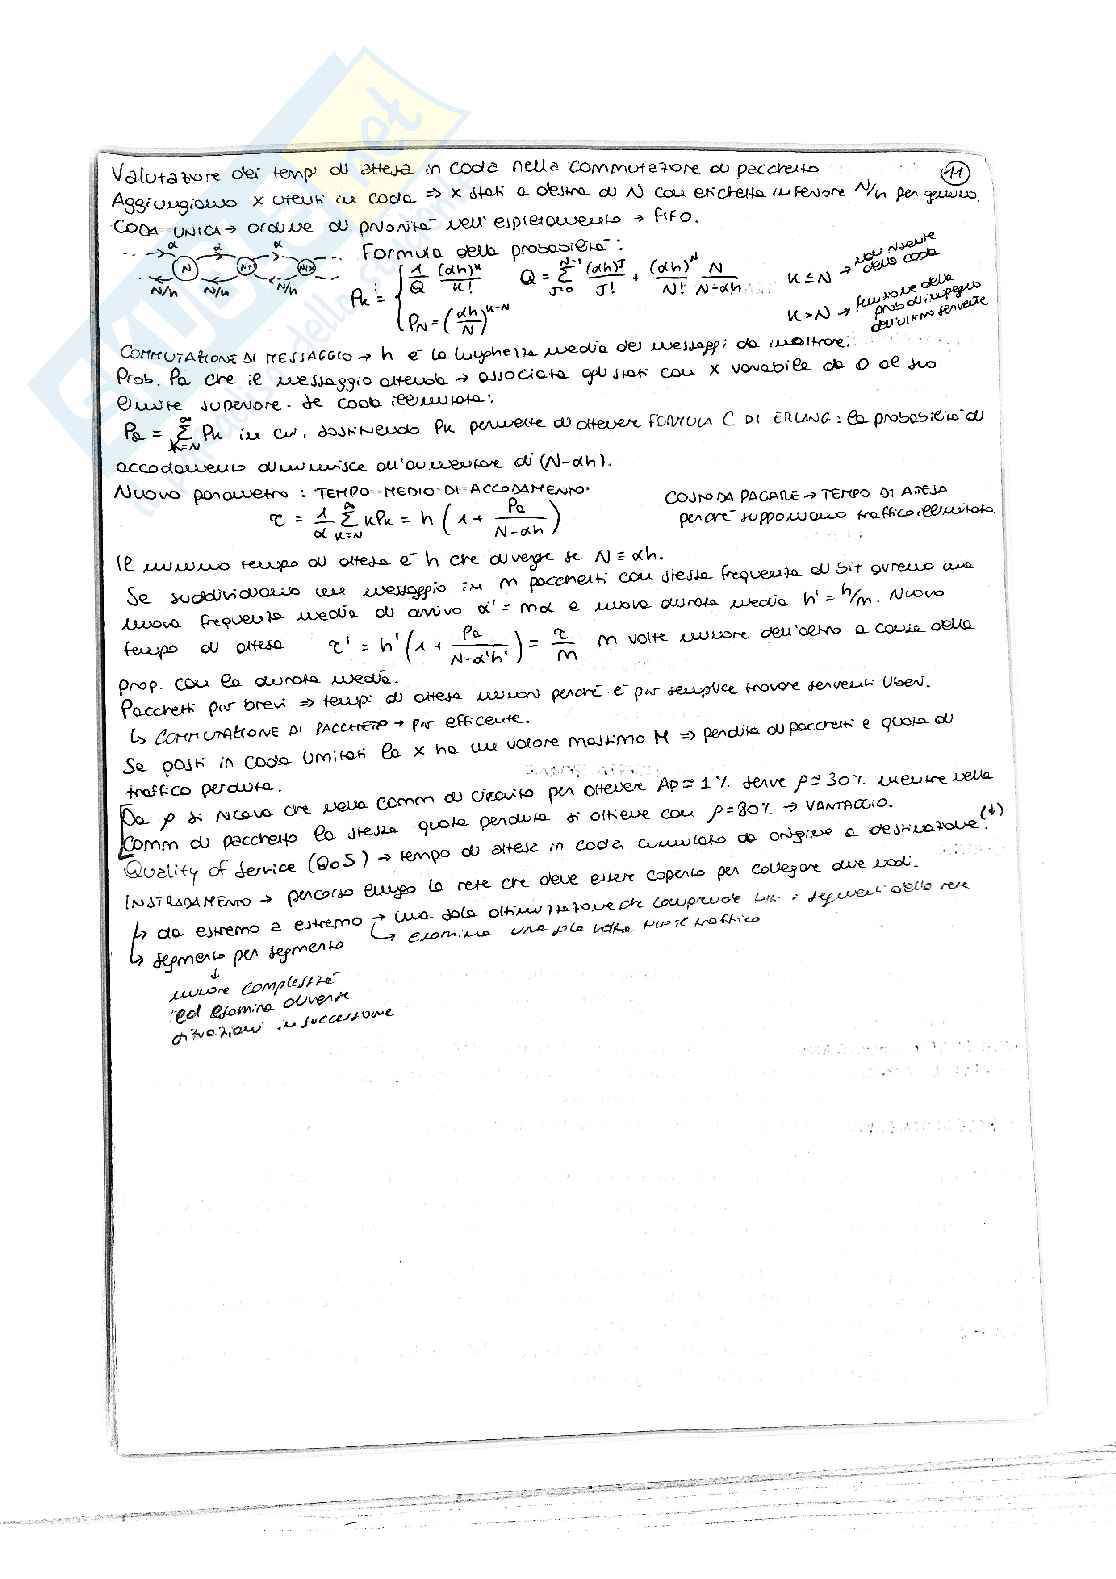 Valutazione dei tempi di attesa in coda nella commutazione di pacchetto
11
Aggiungiamo x utenti in coda ⇒ x stati a destra di N con etichetta inferiore N/h per ognuno.
CODA UNICA → ordine di priorità nell'espletamento → FIFO.
α α α
N N+1
N/h N/h N/h
Formula della probabilità:
Pk = { 1/Q (αh)^k/k!
PN = (αh/N)^k-N
Q = Σ J=0 N-1 (αh)^J/J! + (αh)^N/N! N/N-αh
K ≤ N → non risente della coda
K > N → funzione della prob di impegno dell'ultimo servente
COMMUTAZIONE DI MESSAGGIO → h è la lunghezza media dei messaggi da inoltrare.
Prob. Pa che il messaggio attenda → associata agli stati con x variabile da 0 al suo
limite superiore. Se coda illimitata:
Pa = Σ K=N ∞ Pk in cui, sostituendo Pk permette di ottenere FORMULA C DI ERLANG: la probabilità di
accodamento diminuisce all'aumentare di (N-αh).
Nuovo parametro: TEMPO MEDIO DI ACCODAMENTO.
τ = 1/α Σ K=N ∞ KPk = h (1 + Pa/N-αh)
COSTO DA PAGARE → TEMPO DI ATTESA
perché supponiamo traffico illimitato.
Il minimo tempo di attesa è h che diverge se N = αh.
Se suddividiamo un messaggio in m pacchetti con stessa frequenza di bit avremo una
nuova frequenza media di arrivo α' = mα e nuova durata media h' = h/m. Nuovo
tempo di attesa τ' = h' (1 + Pa/N-α'h') = τ/m m volte minore dell'altro a causa della
prop. con la durata media.
Pacchetti più brevi ⇒ tempi di attesa minori perché è più semplice trovare serventi liberi.
↳ COMMUTAZIONE DI PACCHETTO → più efficente.
Se posti in coda limitati la x ha un valore massimo M ⇒ perdita di pacchetti e quota di
traffico perduta.
Da ρ si ricava che nella comm di circuito per ottenere Ap = 1% serve ρ = 30% mentre nella
comm di pacchetto la stessa quota perduta si ottiene con ρ = 80% → VANTAGGIO.
Quality of Service (QoS) → tempo di attesa in coda cumulato da origine a destinazione. (↓)
INSTRADAMENTO → percorso lungo la rete che deve essere coperto per collegare due nodi.
↳ da estremo a estremo → una sola ottimizzazione che comprende tutti i segmenti della rete
↳ esamina una sola volta tutto il traffico
↳ segmento per segmento
↓
minore complessità
ed esamina diverse
situazioni in successione